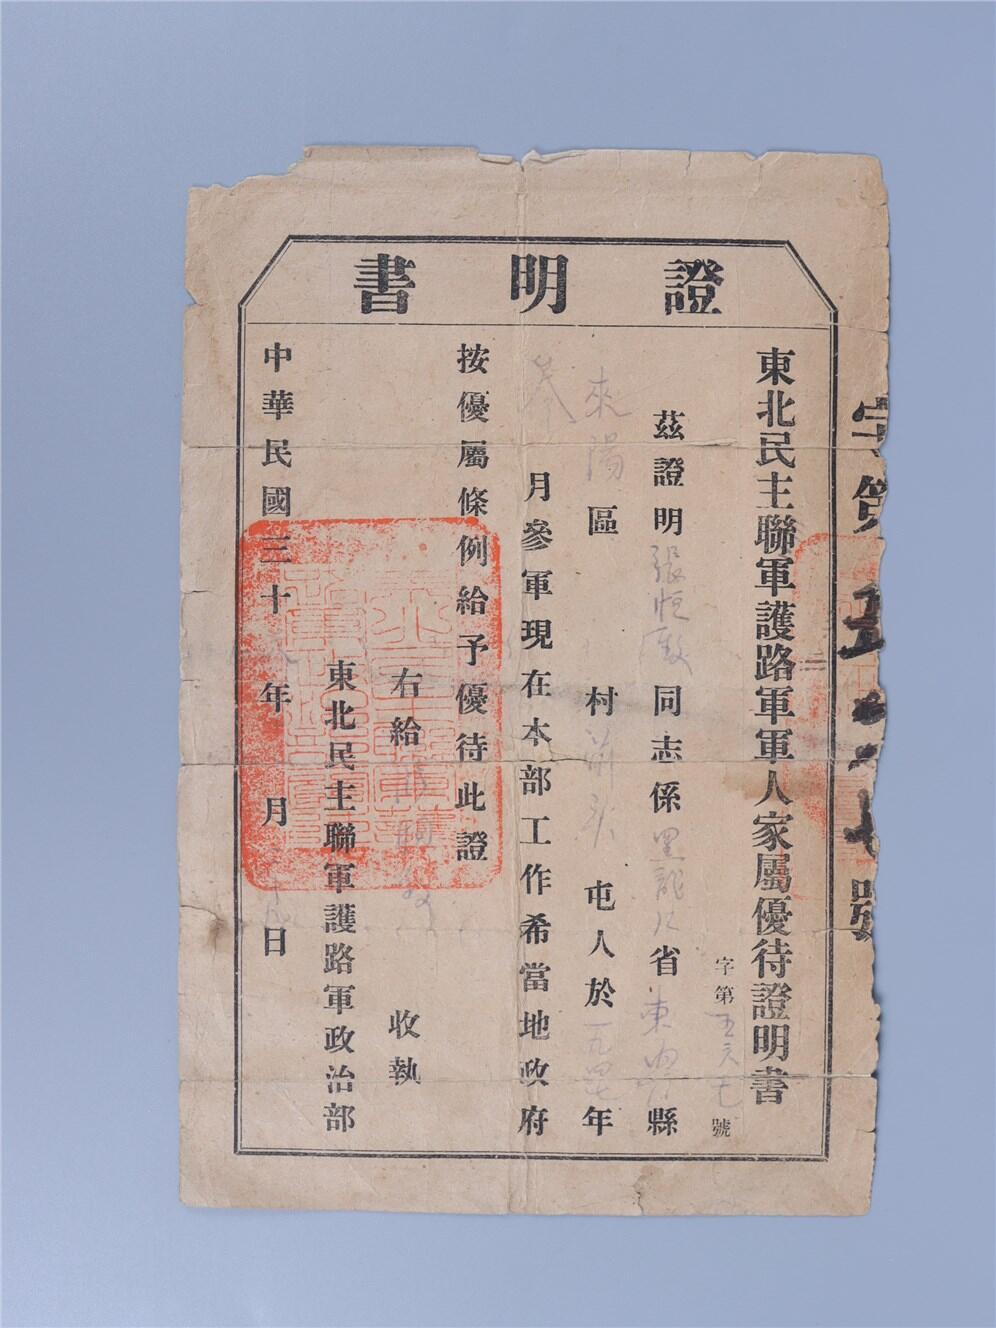 證明書
字第五六七號
東北民主聯軍護路軍軍人家屬優待證明書
字第五六七號
茲證明張恒 同志係黑龍江省東 縣
來陽區 村 屯人於一九四七年
月參軍現在本部工作希當地政府
按優屬條例給予優待此證
右給 收執
東北民主聯軍護路軍政治部
中華民國三十六年 月二十九日